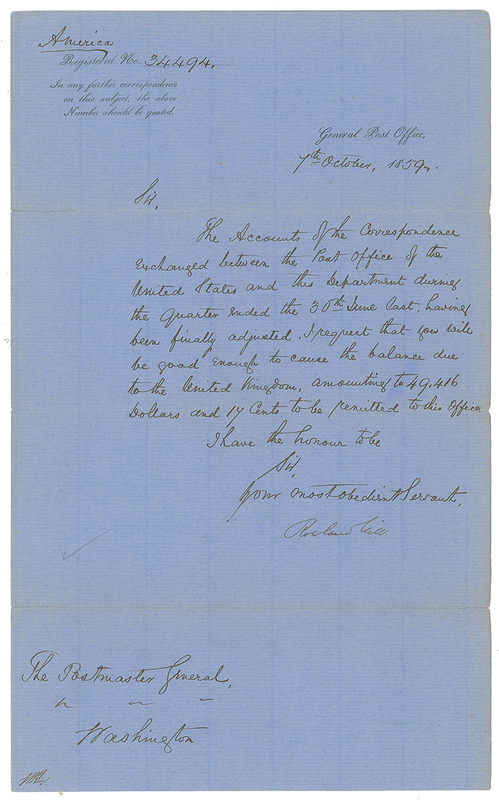 America
Registered No. 34494.
In any further correspondence
on this subject, the above
Number should be quoted.
General Post Office,
7th October, 1859.
Sir,
The Accounts of the Correspondence
exchanged between the Post Office of the
United States and this Department during
the Quarter ended the 30th June last, having
been finally adjusted, I request that you will
be good enough to cause the balance due
to the United Kingdom, amounting to 49,416
Dollars and 17 Cents to be remitted to this Office.
I have the honour to be
Sir,
Your most obedient Servant,
Rowland Hill
The Postmaster General,
Washington